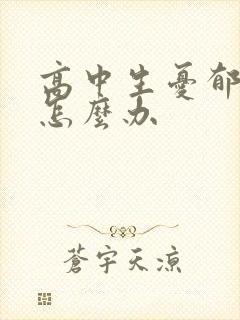 高中生憂郁
怎麼办
蒼宇天涼